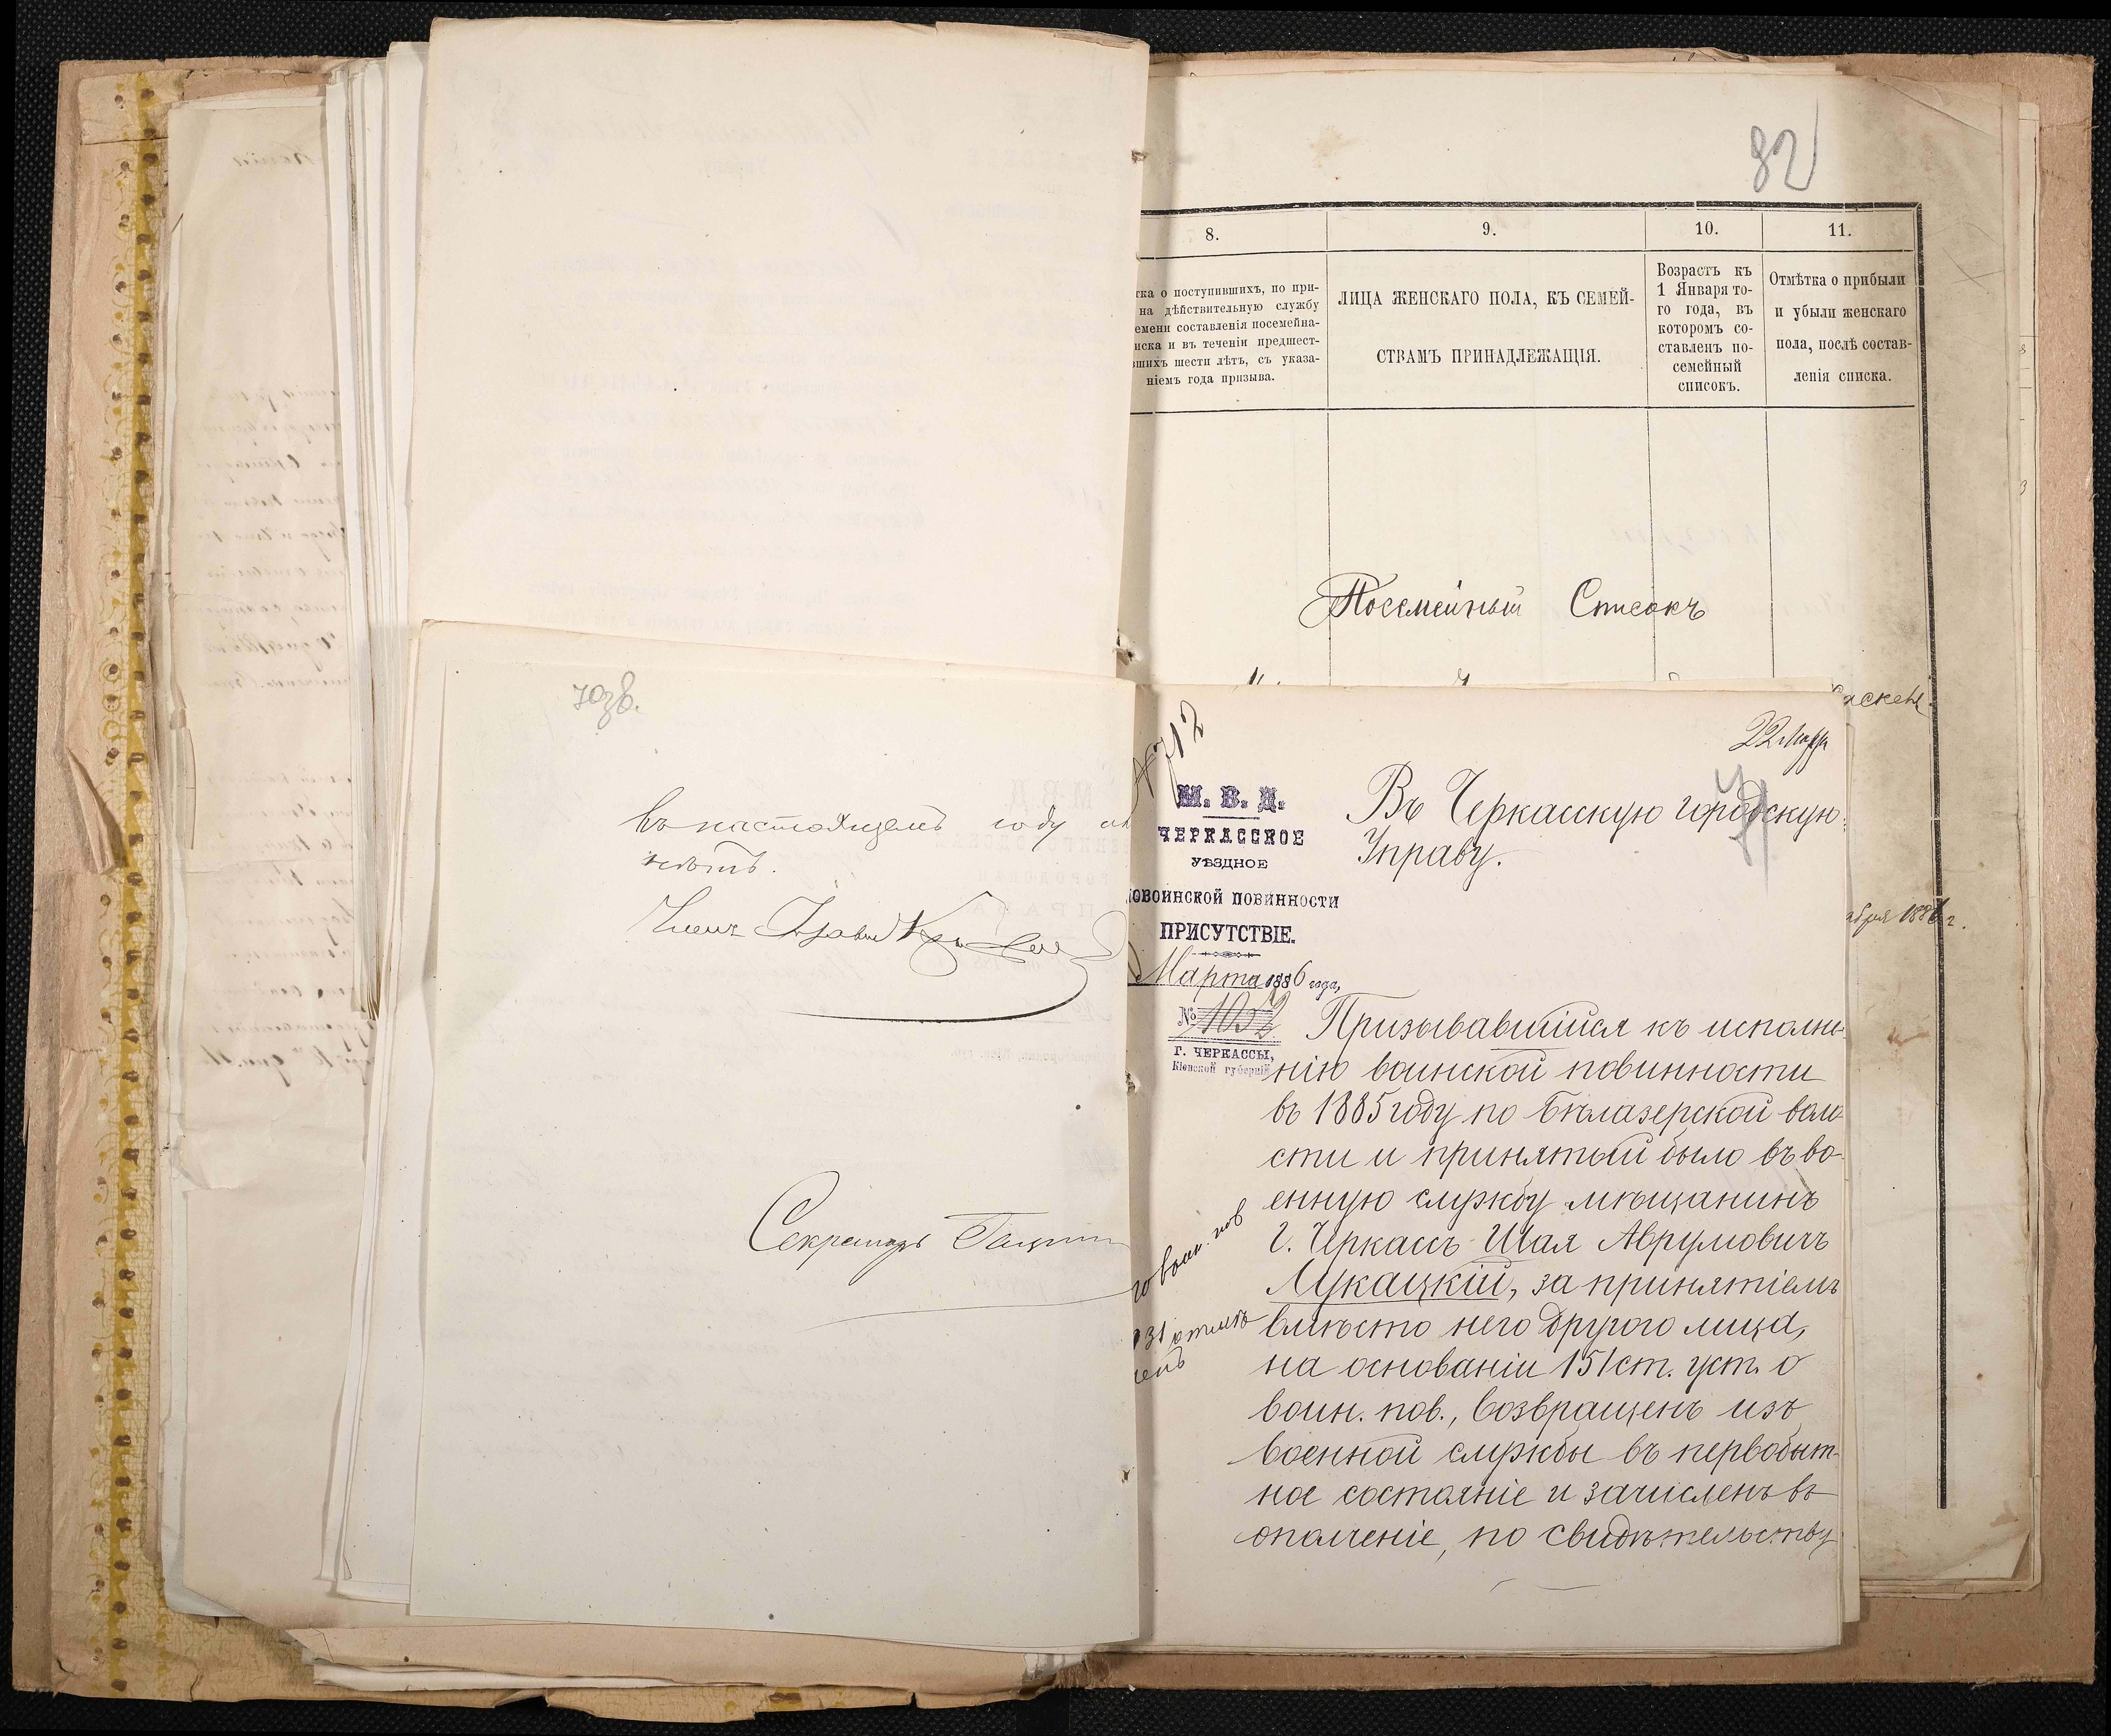 703б.
въ настоящемъ году
нѣтъ.
Членъ Управы
Секретарь
82
8.
9.
10.
11.
тка о поступившихъ, по при-
на дѣйствительную службу
емени составленія посемейна-
иска и въ теченіи предшест-
вшихъ шести лѣтъ, съ указа-
ніемъ года призыва.
ЛИЦА ЖЕНСКАГО ПОЛА, КЪ СЕМЕЙ-
СТВАМЪ ПРИНАДЛЕЖАЩІЯ.
Возрастъ къ
1 Января то-
го года, въ
которомъ со-
ставленъ по-
семейный
списокъ.
Отмѣтка о прибыли
и убыли женскаго
пола, послѣ состав-
ленія списка.
Посемейный Списокъ
22 Марта
№ 712
М. В. Д.
ЧЕРКАССКОЕ
УѢЗДНОЕ
ПОВОИНСКОЙ ПОВИННОСТИ
ПРИСУТСТВІЕ.
Марта 1886 года,
№ 1052
Г. ЧЕРКАССЫ,
Кіевской губерніи
Въ Черкасскую городскую
Управу.
Призывавшійся къ исполне-
нію воинской повинности
въ 1885 году по Бѣлазерской воло-
сти и принятый было въ во-
енную службу мѣщанинъ
г. Черкассъ Шая Аврумовичъ
Лукацкій, за принятіемъ
вмѣсто него другого лица,
на основаніи 151 ст. уст. о
воин. пов., возвращенъ изъ
военной службы въ первобыт-
ное состояніе и зачисленъ въ
ополченіе, по свидѣтельству
го воин. пов
абря 1886 г.